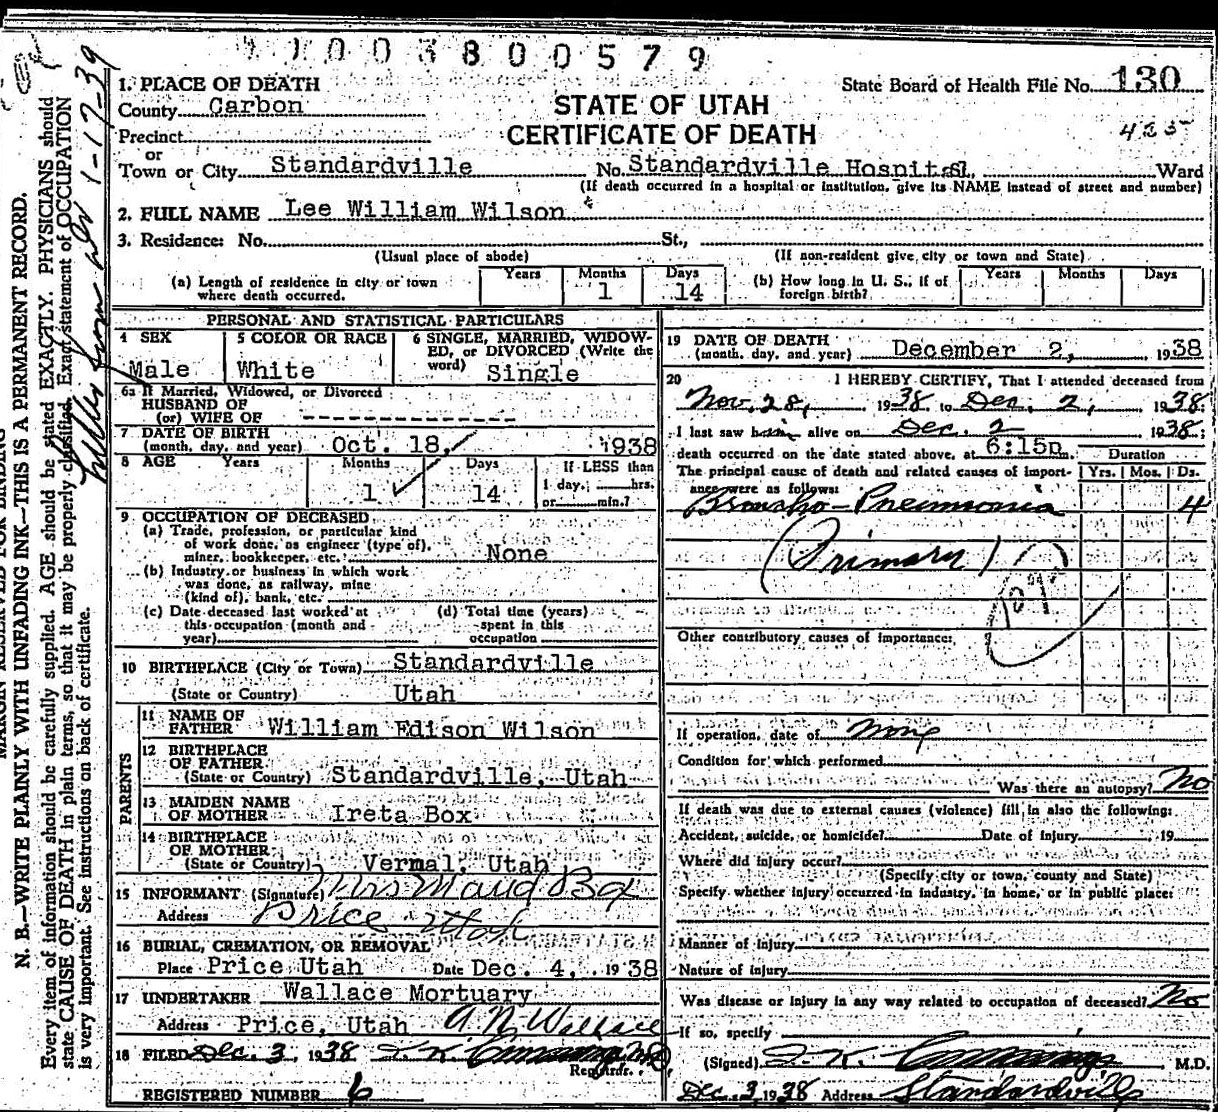 1 0 0 3 8 0 0 5 7 9
1. PLACE OF DEATH
State Board of Health File No. 130
County Carbon
STATE OF UTAH
425
Precinct
CERTIFICATE OF DEATH
or
Town or City Standardville No. Standardville Hospital, Ward
(If death occurred in a hospital or institution, give its NAME instead of street and number)
2. FULL NAME Lee William Wilson
3. Residence: No. St.,
(Usual place of abode) (If non-resident give city or town and State)
(a) Length of residence in city or town where death occurred. Years Months 1 Days 14
(b) How long in U. S., if of foreign birth? Years Months Days
PERSONAL AND STATISTICAL PARTICULARS
4 SEX Male
5 COLOR OR RACE White
6 SINGLE, MARRIED, WIDOW-
ED, or DIVORCED (Write the
word) Single
6a If Married, Widowed, or Divorced
HUSBAND OF
(or) WIFE OF
7 DATE OF BIRTH
(month, day, and year) Oct. 18, 1938
8 AGE Years Months 1 Days 14 If LESS than
1 day, hrs.
or min.?
9 OCCUPATION OF DECEASED
(a) Trade, profession, or particular kind
of work done, as engineer (type of),
miner, bookkeeper, etc. None
(b) Industry or business in which work
was done, as railway, mine
(kind of), bank, etc.
(c) Date deceased last worked at
this occupation (month and
year)
(d) Total time (years)
spent in this
occupation
10 BIRTHPLACE (City or Town) Standardville
(State or Country) Utah
PARENTS
11 NAME OF
FATHER William Edison Wilson
12 BIRTHPLACE
OF FATHER
(State or Country) Standardville, Utah
13 MAIDEN NAME
OF MOTHER Ireta Box
14 BIRTHPLACE
OF MOTHER
(State or Country) Vernal, Utah
15 INFORMANT (Signature) Mrs Maud Box
Address Price Utah
16 BURIAL, CREMATION, OR REMOVAL
Place Price Utah Date Dec. 4, 1938
17 UNDERTAKER Wallace Mortuary
Address Price, Utah A. N. Wallace
18 FILED Dec. 3, 1938
Registrar.
REGISTERED NUMBER 6
19 DATE OF DEATH
(month, day, and year) December 2, 1938
20 I HEREBY CERTIFY, That I attended deceased from
Nov. 28, 1938, to Dec. 2, 1938;
I last saw him alive on Dec. 2 1938;
death occurred on the date stated above, at 6:15p m.
The principal cause of death and related causes of import-
ance were as follows:
Duration
Yrs. Mos. Ds.
Broncho-Pneumonia 4
(Primary)
107
Other contributory causes of importance:
If operation, date of None
Condition for which performed
Was there an autopsy? No
If death was due to external causes (violence) fill in also the following:
Accident, suicide, or homicide? Date of injury 19
Where did injury occur?
(Specify city or town, county and State)
Specify whether injury occurred in industry, in home, or in public place:
Manner of injury
Nature of injury
Was disease or injury in any way related to occupation of deceased? No
If so, specify
(Signed) M.D.
Dec. 3, 1938 Address Standardville
MARGIN RESERVED FOR BINDING
N. B.—WRITE PLAINLY WITH UNFADING INK—THIS IS A PERMANENT RECORD.
Every item of information should be carefully supplied. AGE should be stated EXACTLY. PHYSICIANS should
state CAUSE OF DEATH in plain terms, so that it may be properly classified. Exact statement of OCCUPATION
is very important. See instructions on back of certificate.
1-17-39